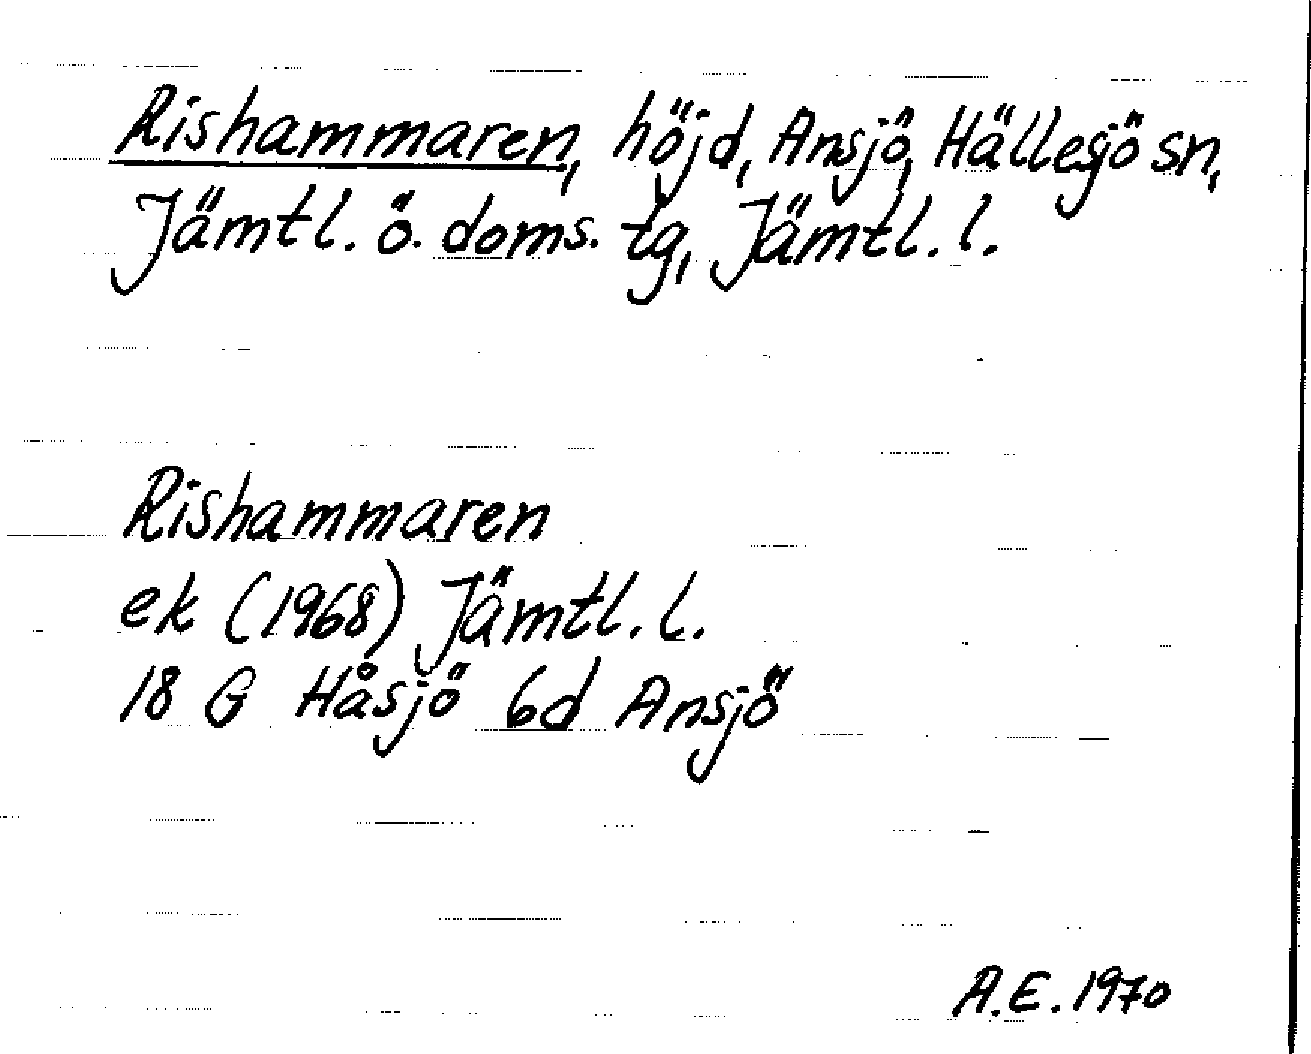 Rishammaren, höjd, Ansjö, Hällesjö sn,
Jämtl. ö. doms. tg, Jämtl. l.
Rishammaren
ek (1968) Jämtl. l.
18 G Håsjö 6d Ansjö
A.E. 1970